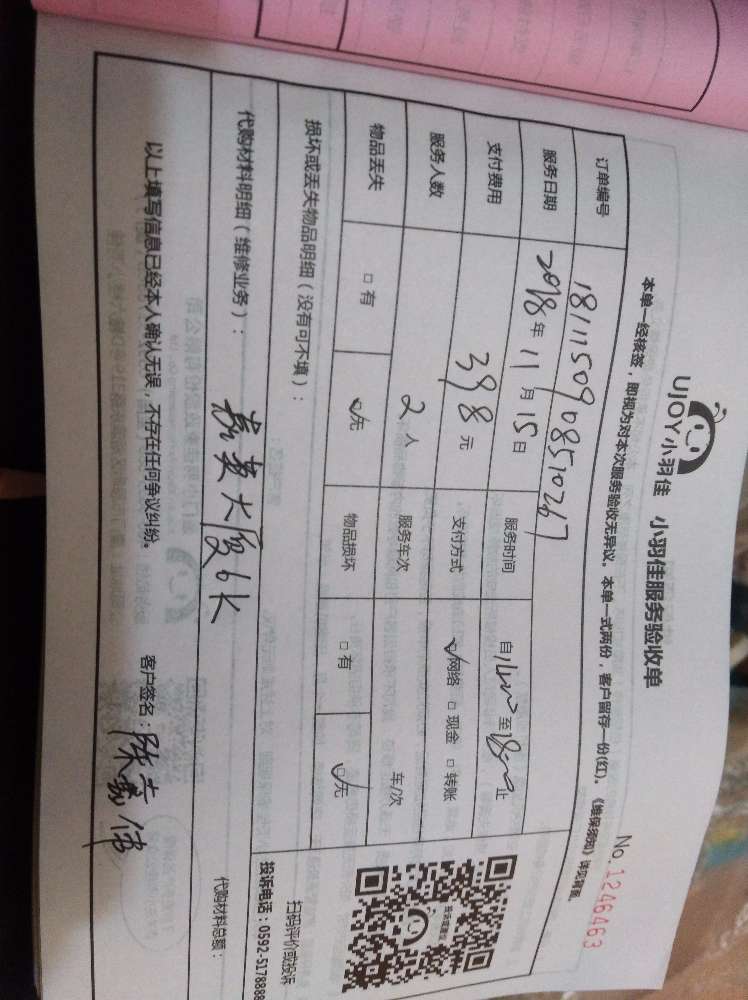 UJOY小羽佳 小羽佳服务验收单
No.1246463
本单一经核签，即视为对本次服务验收无异议。本单一式两份，客户留存一份(红)。《维保须知》详见背面。
订单编号 1811150908510267
服务日期 2018年11月15日 服务时间 自 至 止
支付费用 398元 支付方式 ☑网络 □现金 □转账
服务人数 2人 服务车次 车/次
物品丢失 □有 ☑无 物品损坏 □有 ☑无
损坏或丢失物品明细（没有可不填）：
扫码评价或投诉
投诉电话：0592-5178888
代购材料明细（维修业务）： 大厦6K
代购材料总额：
以上填写信息已经本人确认无误，不存在任何争议纠纷。 客户签名：陈